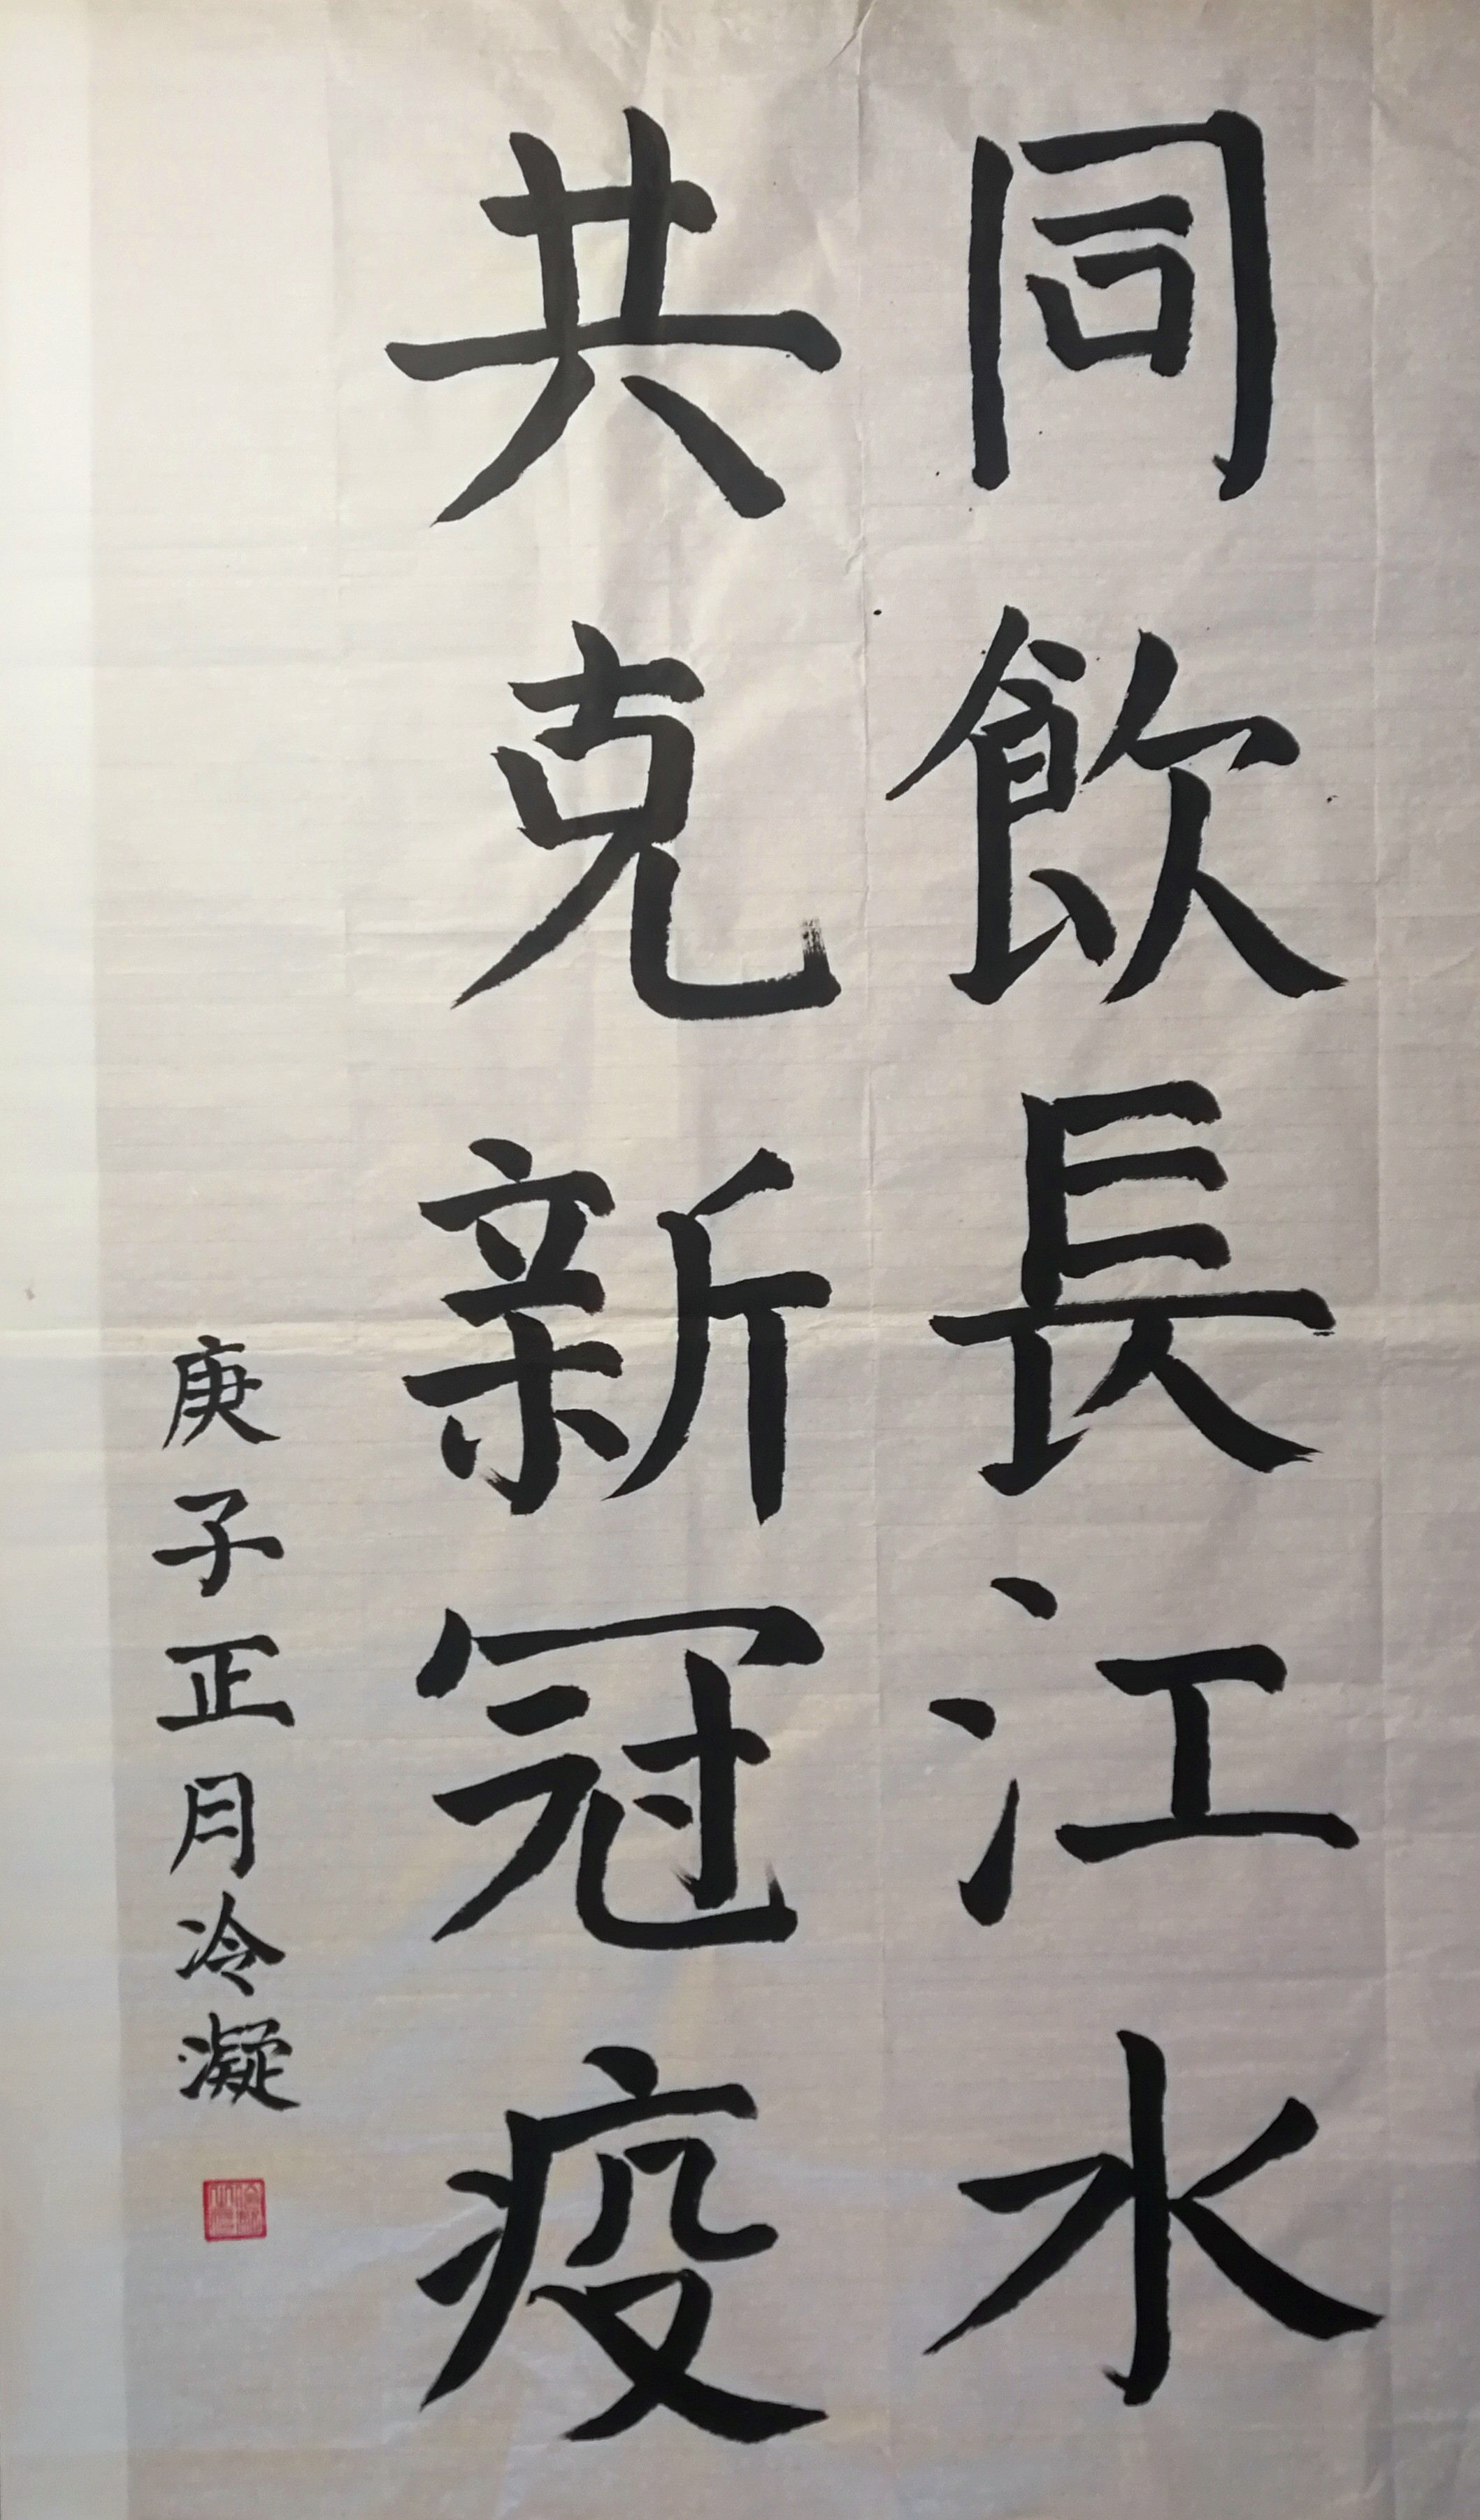 同飲長江水
共克新冠疫
庚子正月冷凝